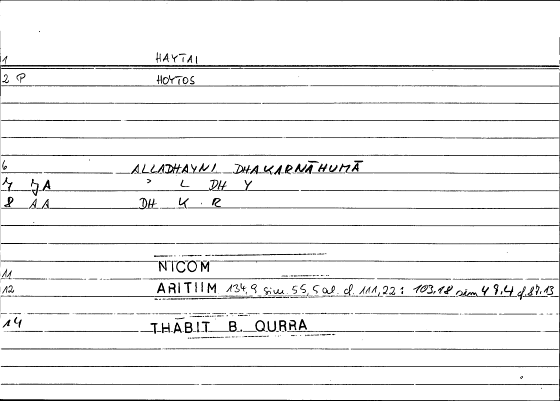 1 HAYTAI
2 P HOYTOS
6 ALLADHAYNI DHAKARNĀHUMĀ
7 JA ʾ L DH Y
8 AA DH K R
11 NICOM
12 ARITIIM 134,9 sim. 55,5 al. cf. 111,22: 103.18 sim 49.4 cf 89.13
14 THĀBIT B. QURRA